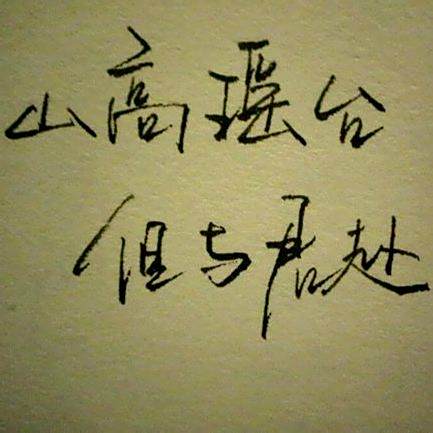 山高瑶台
但与君赴